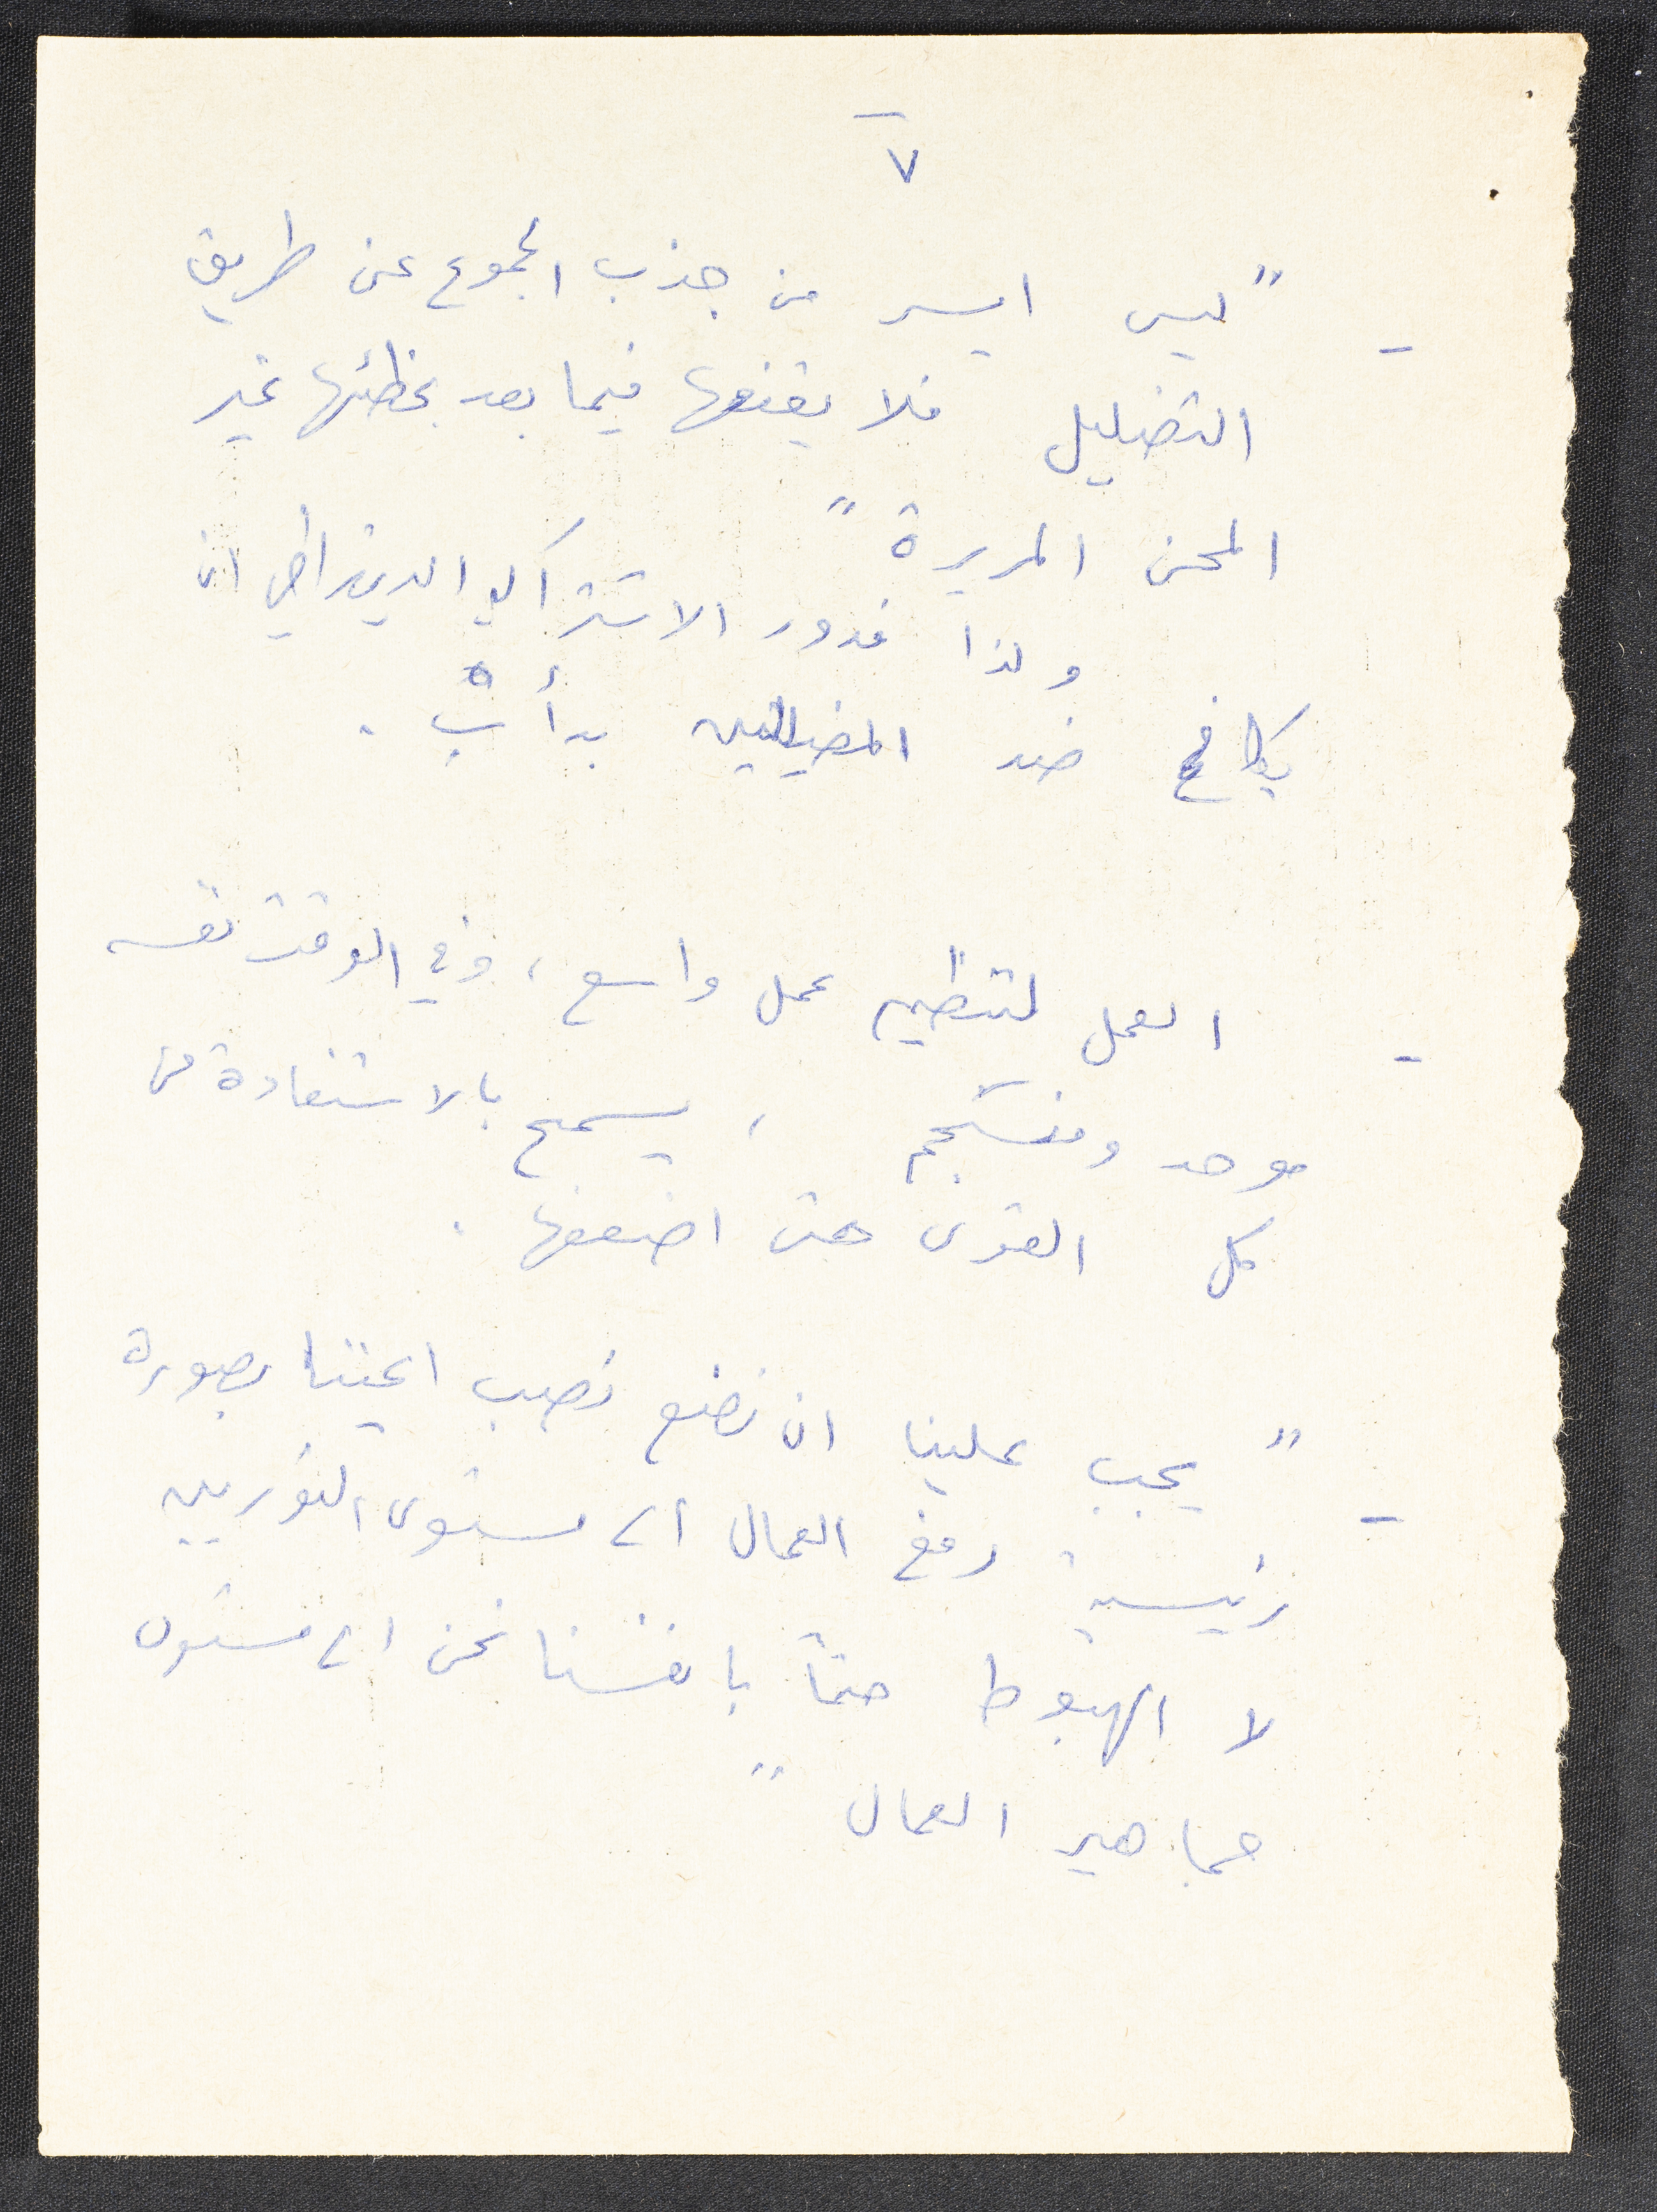 ٧
- "ليس ايسر من جذب الجموع عن طريق
التضليل فلا يقنعها فيما بعد بخطئها غير
المحن المريرة"
ولذا فدور الاشتراكي الديمقراطي ان
يكافح ضد المضللين بدأب .
- العمل لتنظيم عمل واسع ، وفي الوقت نفسه
موحد ومنسجم ، يسمح بالاستفادة من
كل القوى حتى اضعفها .
- "يجب علينا ان نضع نصب اعيننا بصورة
رئيسية رفع العمال الى مستوى الثوريين
لا الهبوط حتماً بانفسنا نحن الى مستوى
جماهير العمال"